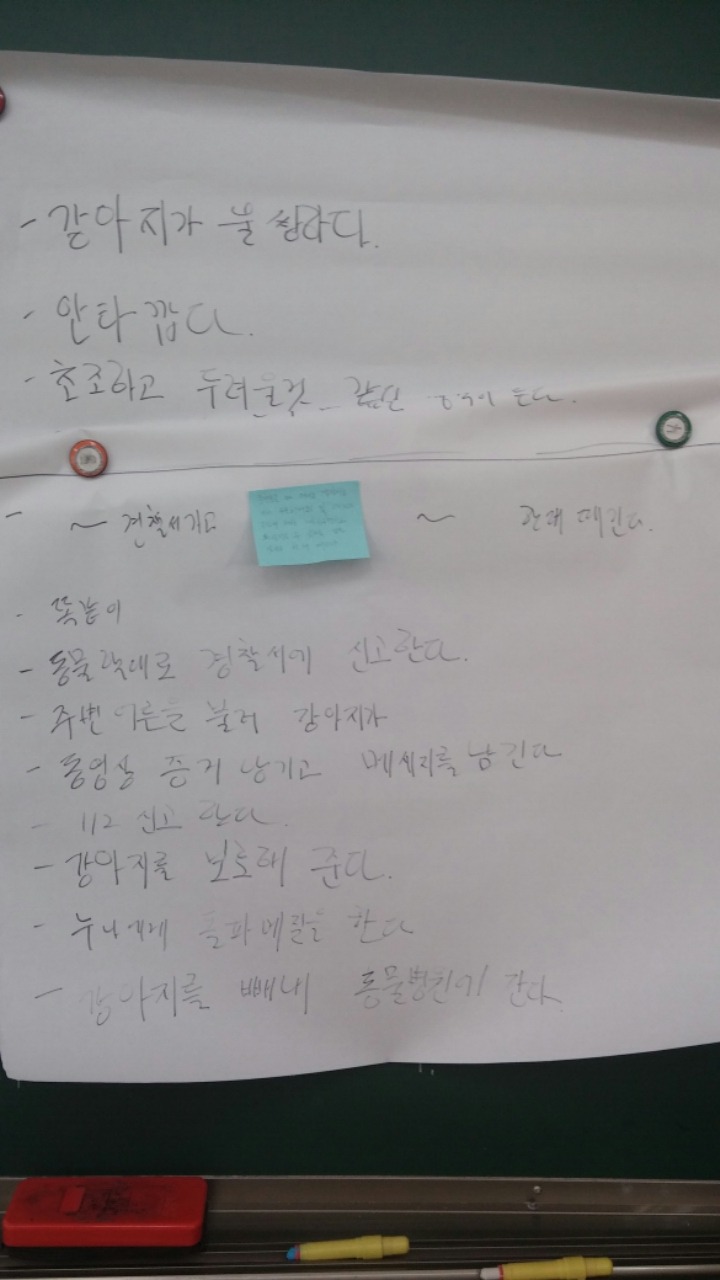 - 강아지가 불쌍하다.
- 안타깝다.
- 초조하고 두려울것 같은 든다.
- ~ 경찰서가고 ~ 한대 때린다.
- 똑같이
- 동물학대로 경찰서에 신고한다.
- 주변 어른을 불러 강아지가
- 동영상 증거 남기고 메세지를 남긴다
- 112 신고 한다.
- 강아지를 보호해 준다.
- 누나에게 한다
- 강아지를 빼내 동물병원에 간다.